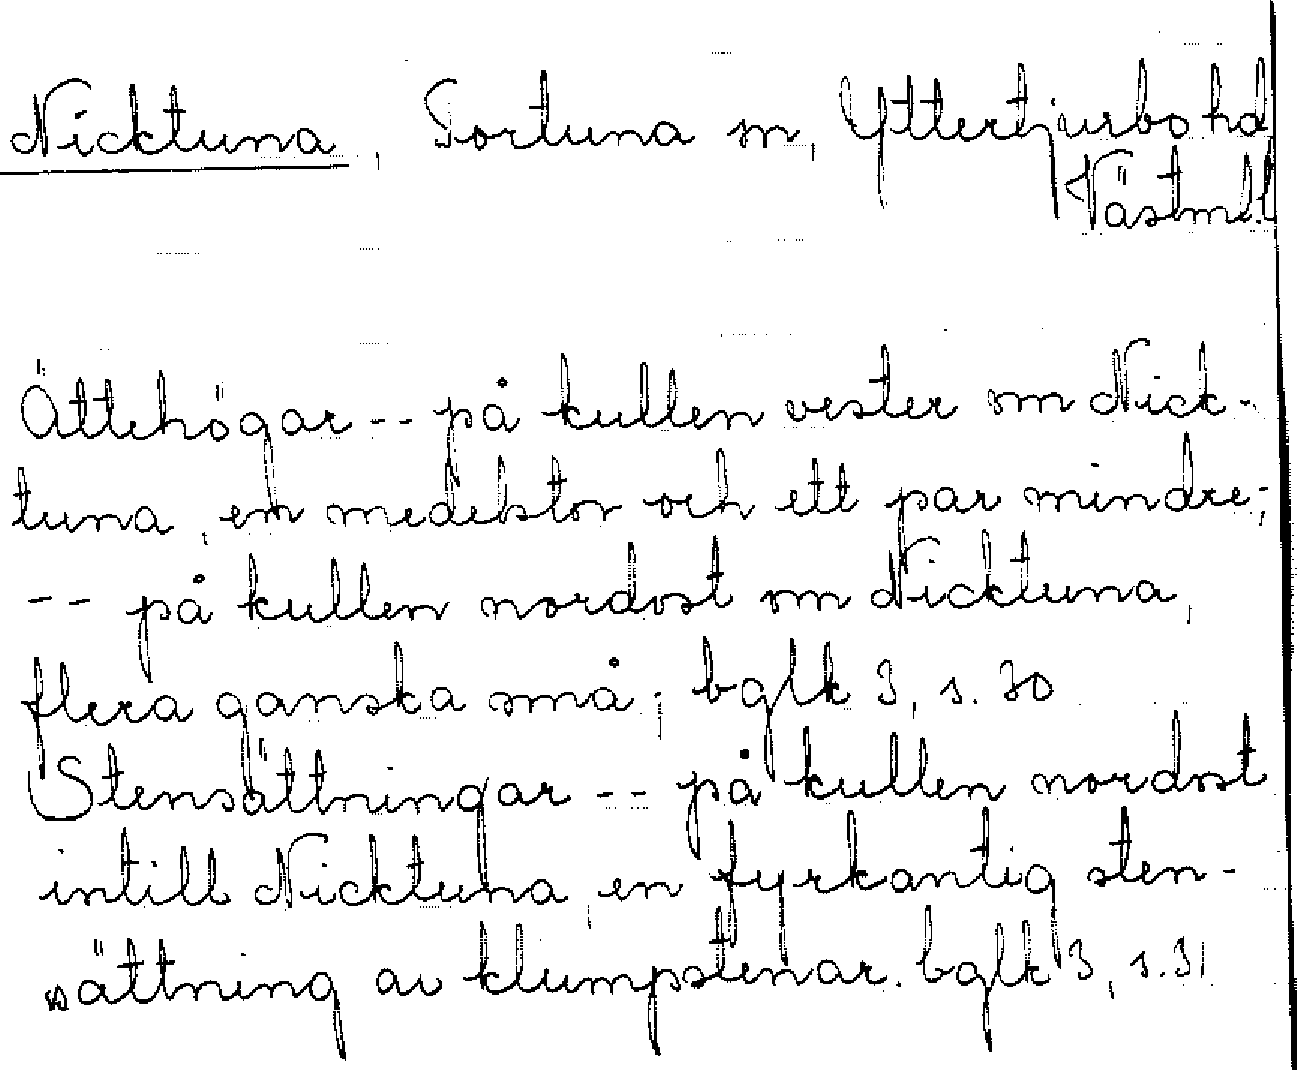 Nicktuna, Tortuna sn, Yttertjurbo hd
Västml.
Ättehögar -- på kullen vester om Nick-
tuna, en medelstor och ett par mindre;
-- på kullen nordost om Nicktuna,
flera ganska små; bglk 3, s. 30
Stensättningar -- på kullen nordost
intill Nicktuna, en fyrkantig sten-
sättning av klumpstenar. bglk 3, s. 31